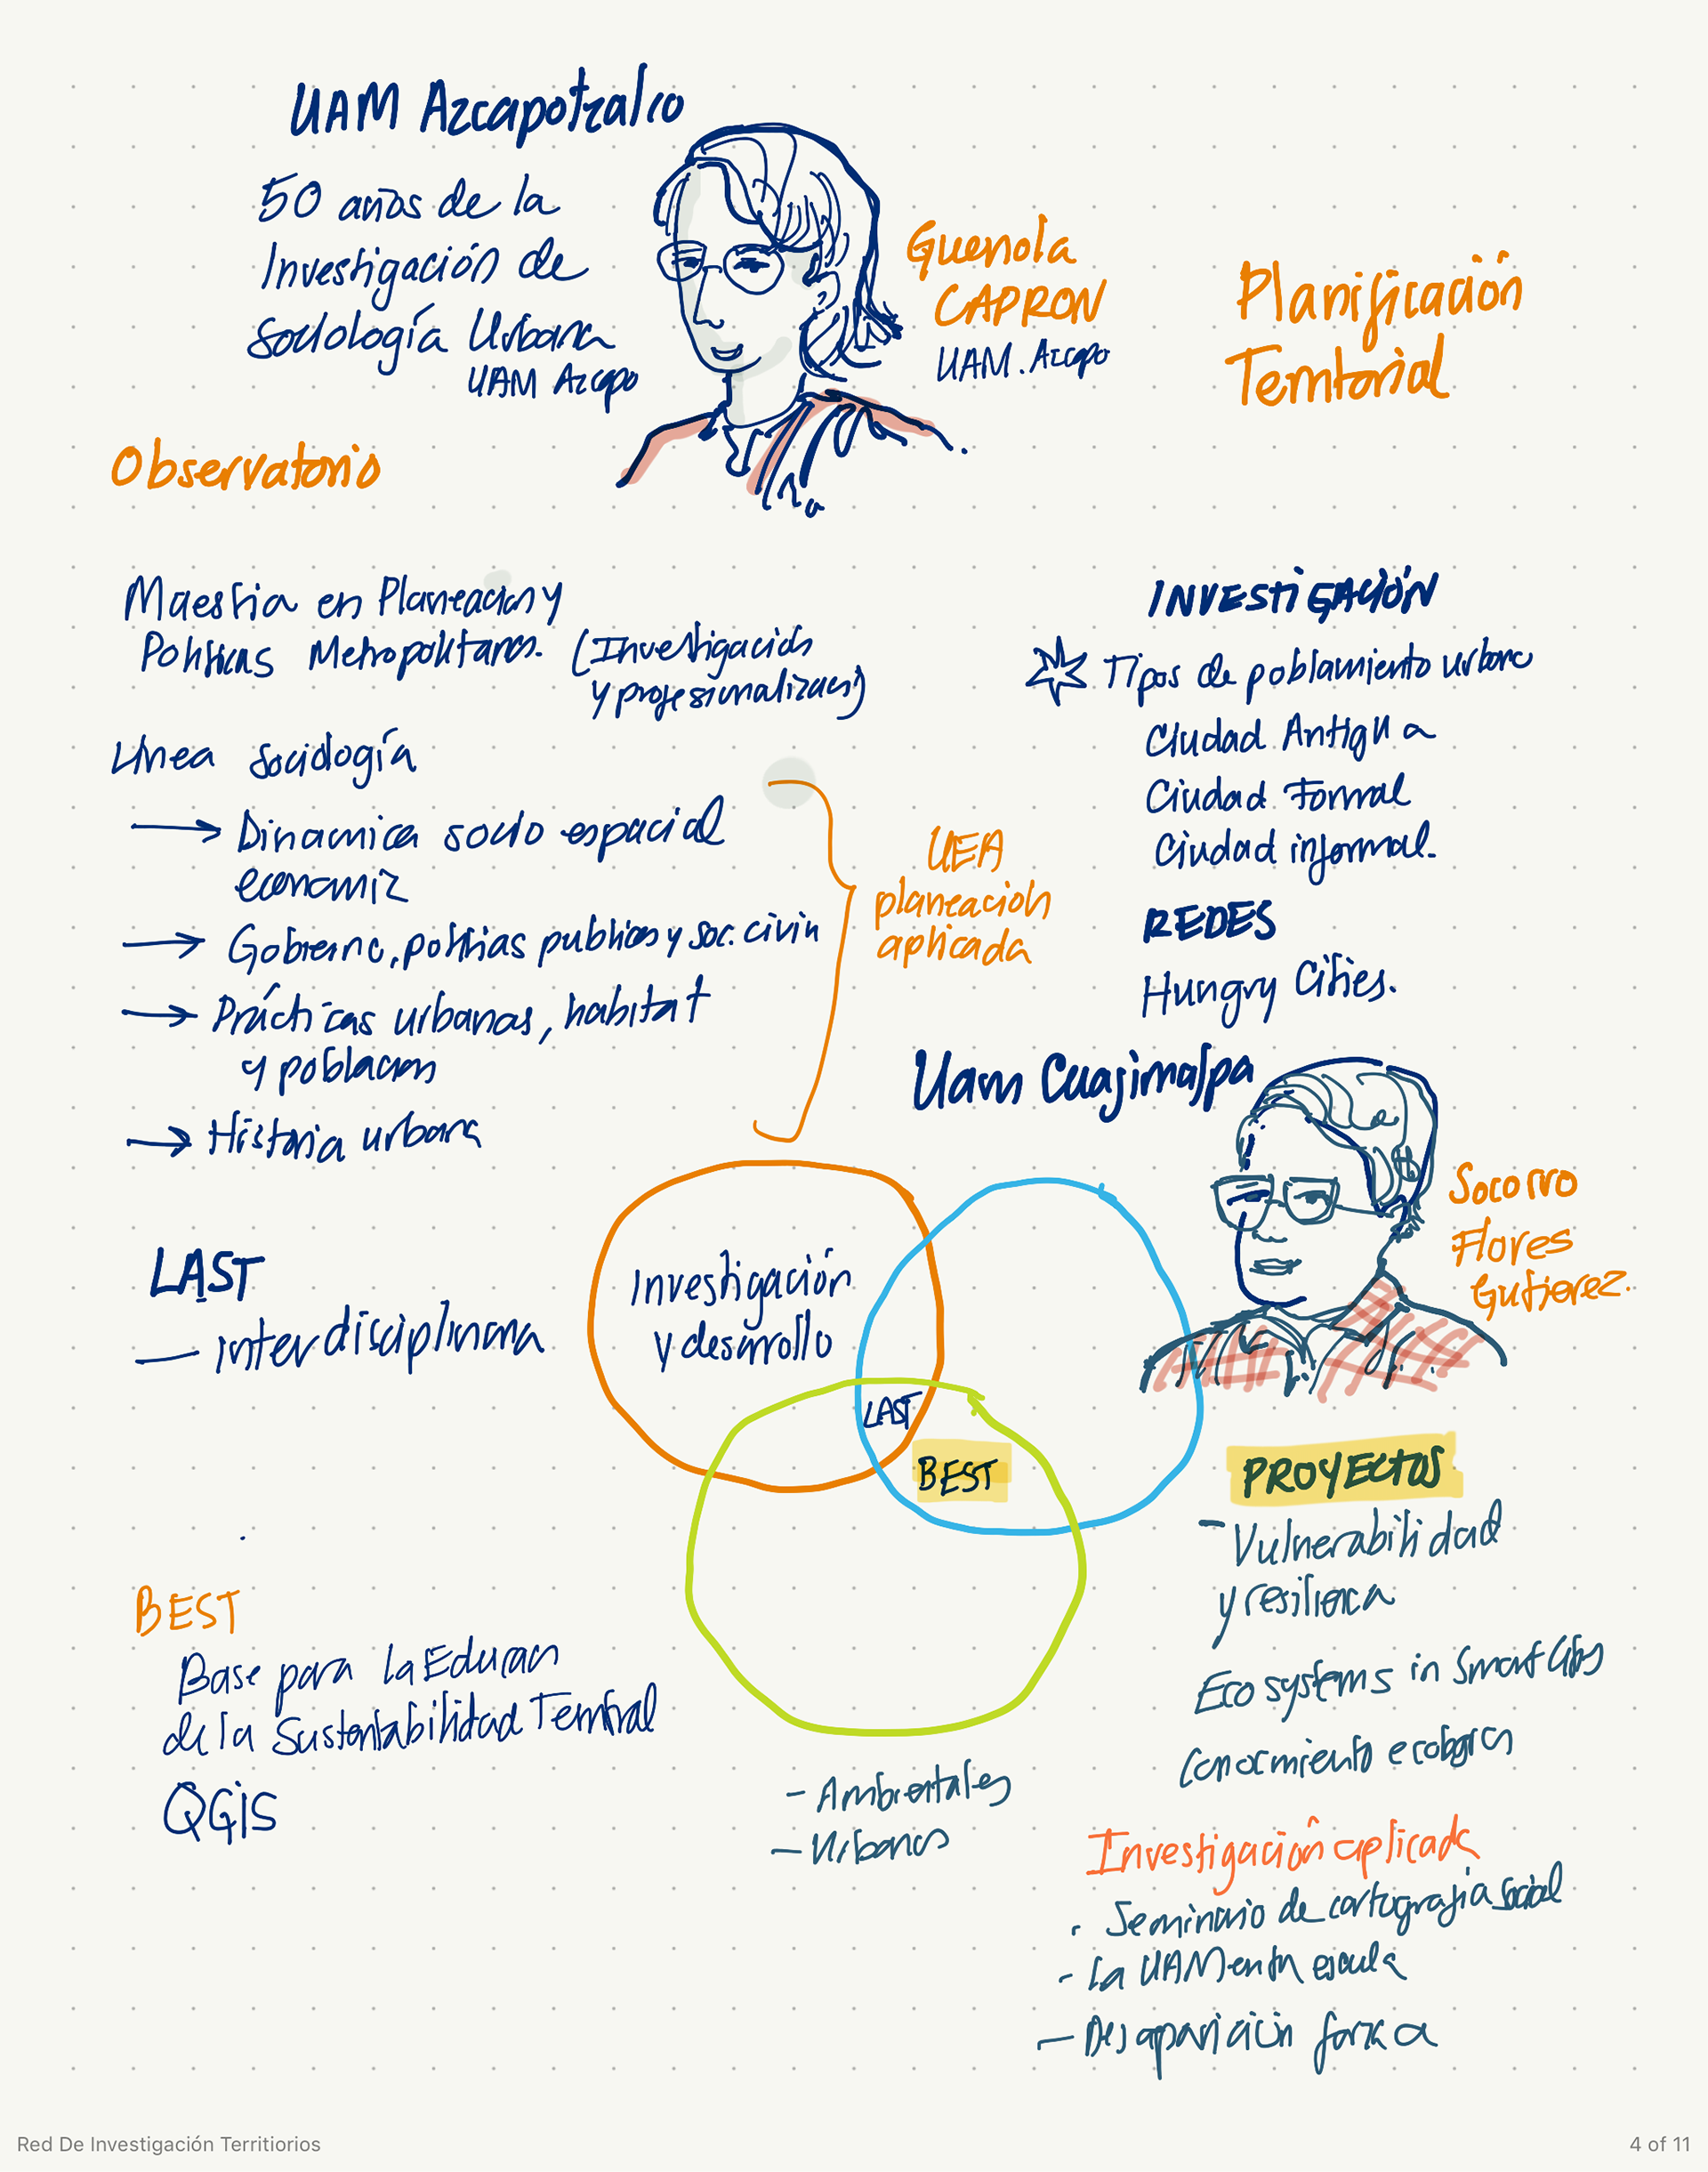 UAM Azcapotzalco
50 años de la
Investigación de
Sociología Urbana
UAM Azcapo
Guenola
CAPRON
UAM. Azcapo
Planificación
Territorial
Observatorio
Maestria en Planeacion y
Politicas Metropolitanas. (Investigación
y profesionalización)
Línea Sociología
→ Dinamica socio espacial
economic
→ Gobierno, politicas publicas y soc. civil
→ Prácticas urbanas, habitat
y poblacion
→ Historia urbana
UEA
planeación
aplicada
INVESTIGACIÓN
☆ Tipos de poblamiento urbano
Ciudad Antigua
Ciudad Formal
Ciudad informal.
REDES
Hungry Cities.
Uam Cuajimalpa
Socorro
Flores
Gutierez.
LAST
— interdisciplinaria
Investigación
y desarrollo
LAST
BEST
PROYECTOS
- Vulnerabilidad
y resiliencia
Eco systems in Smart Cities
Conocimiento ecologico
BEST
Base para la Educacion
de la Sustentabilidad Territorial
QGIS
- Ambientales
- Urbanos
Investigación aplicada
· Seminario de cartografia social
- la UAM en tu escuela
- Desaparición forzada
Red De Investigación Territiorios
4 of 11